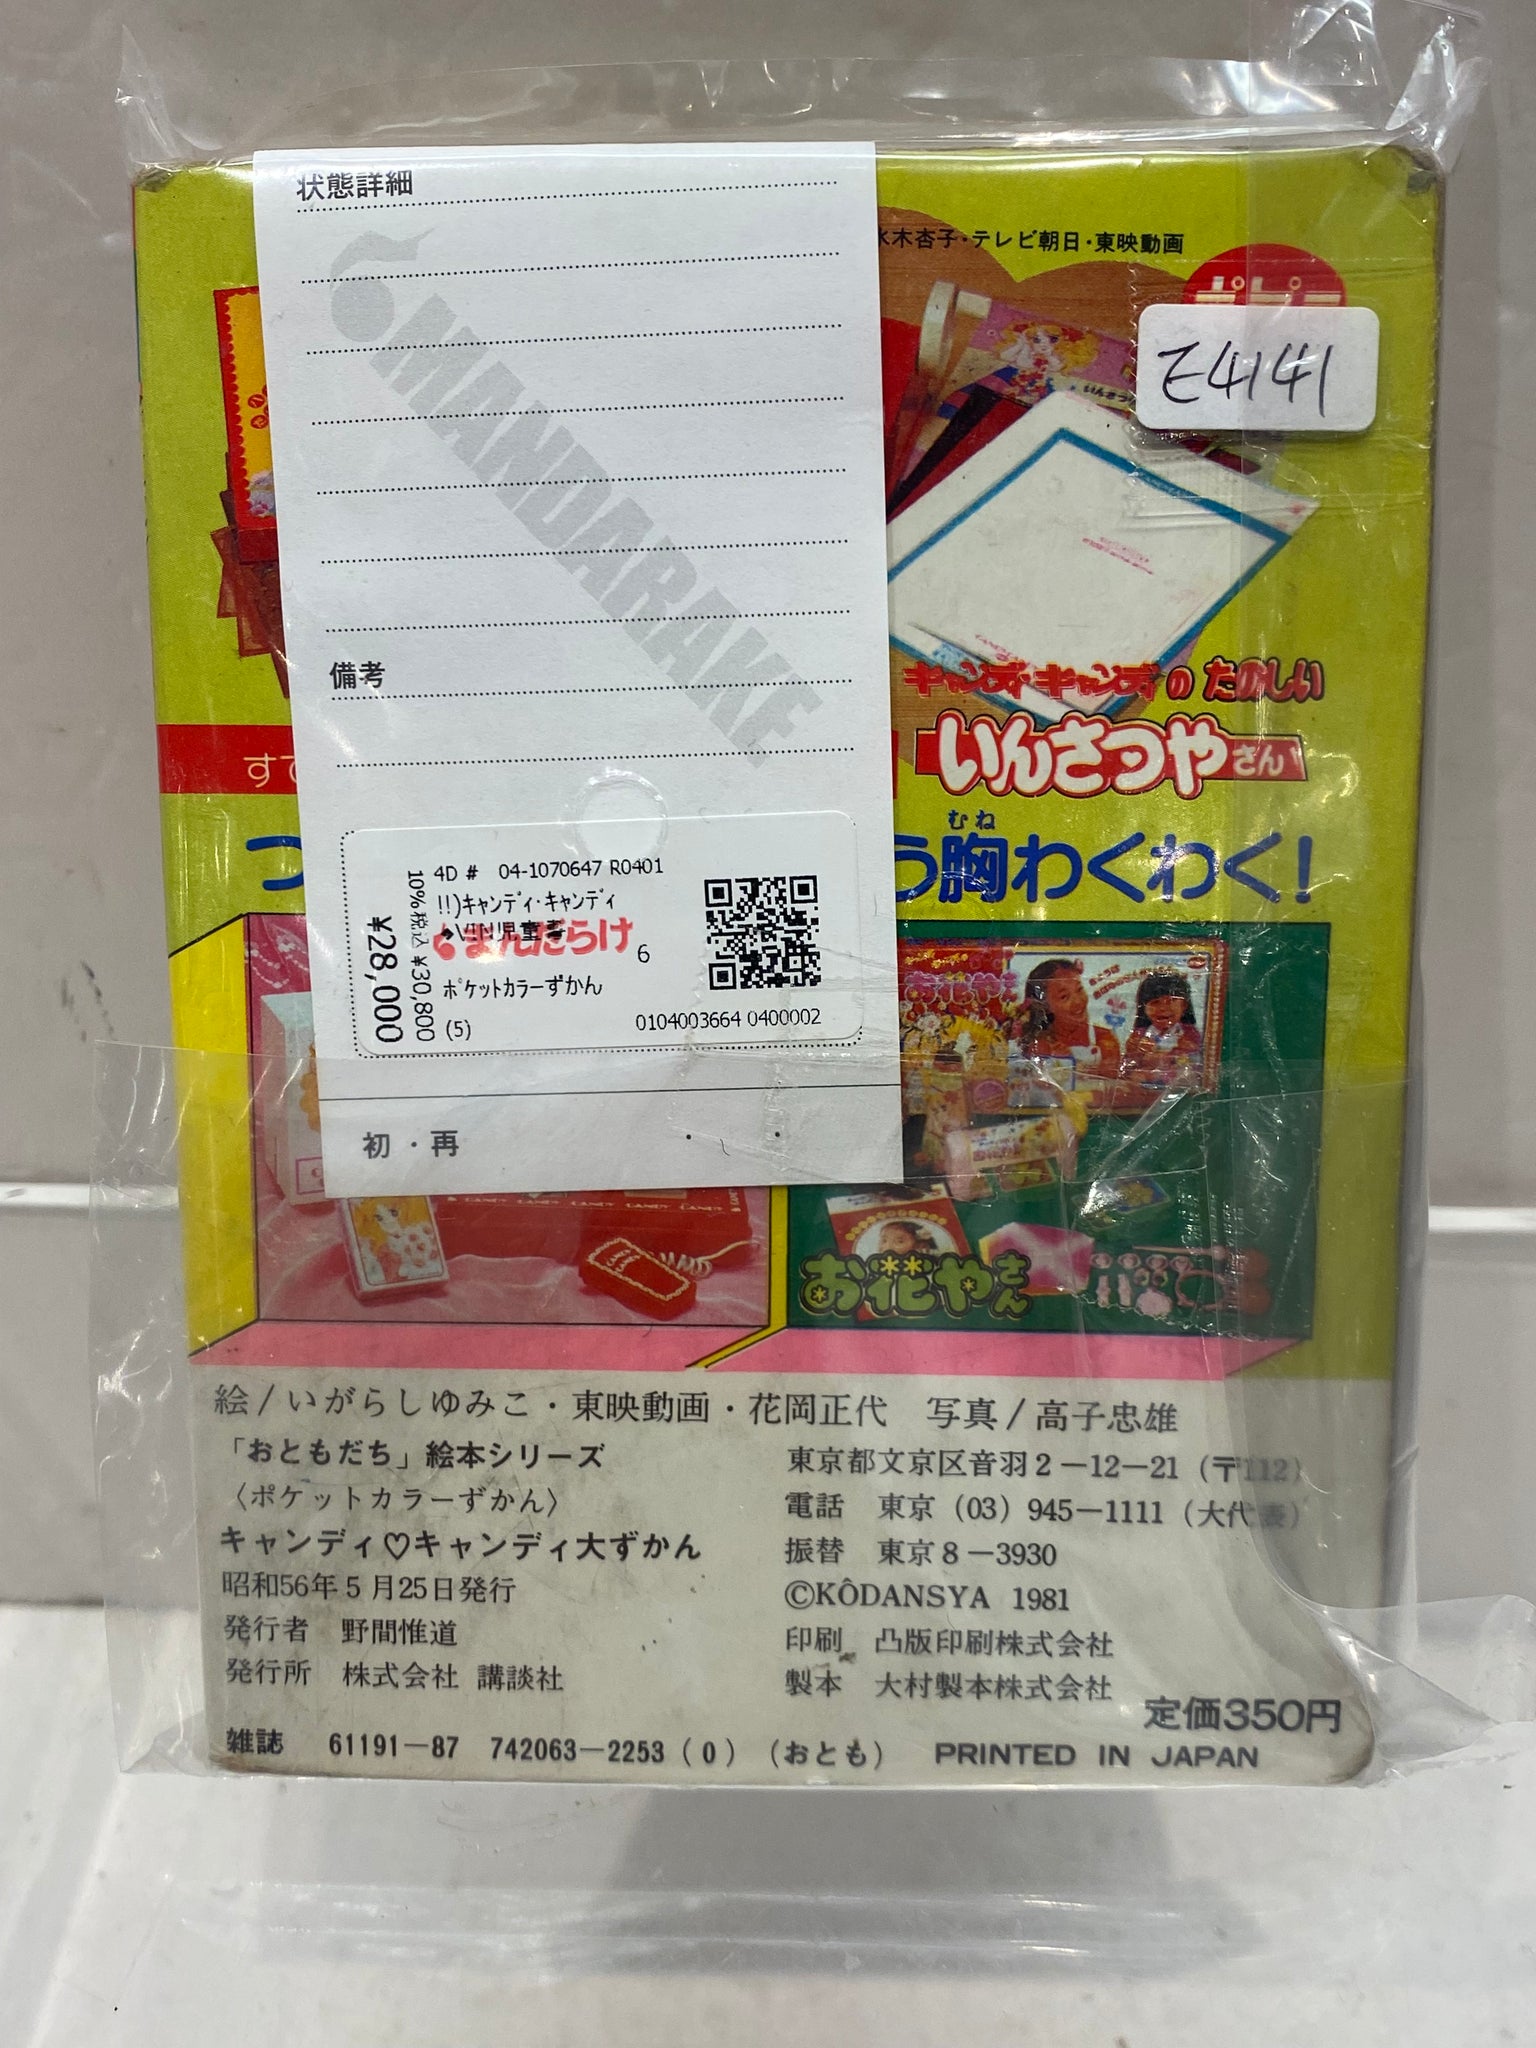 状態詳細
MANDARAKE
備考
4D # 04-1070647 R0401
!!)キャンディ・キャンディ
まんだらけ
6
ポケットカラーずかん
(5)
0104003664 0400002
10%税込 ¥30,800
¥28,000
初・再
水木杏子・テレビ朝日・東映動画
E4141
キャンディ・キャンディの たのしい
いんさつやさん
むね
う胸わくわく!
お花やさん
絵/いがらしゆみこ・東映動画・花岡正代 写真/高子忠雄
「おともだち」絵本シリーズ
〈ポケットカラーずかん〉
キャンディ♡キャンディ大ずかん
昭和56年5月25日発行
発行者 野間惟道
発行所 株式会社 講談社
東京都文京区音羽2-12-21(〒112)
電話 東京(03)945-1111(大代表)
振替 東京8-3930
©KÔDANSYA 1981
印刷 凸版印刷株式会社
製本 大村製本株式会社
定価350円
雑誌 61191-87 742063-2253(0)(おとも) PRINTED IN JAPAN